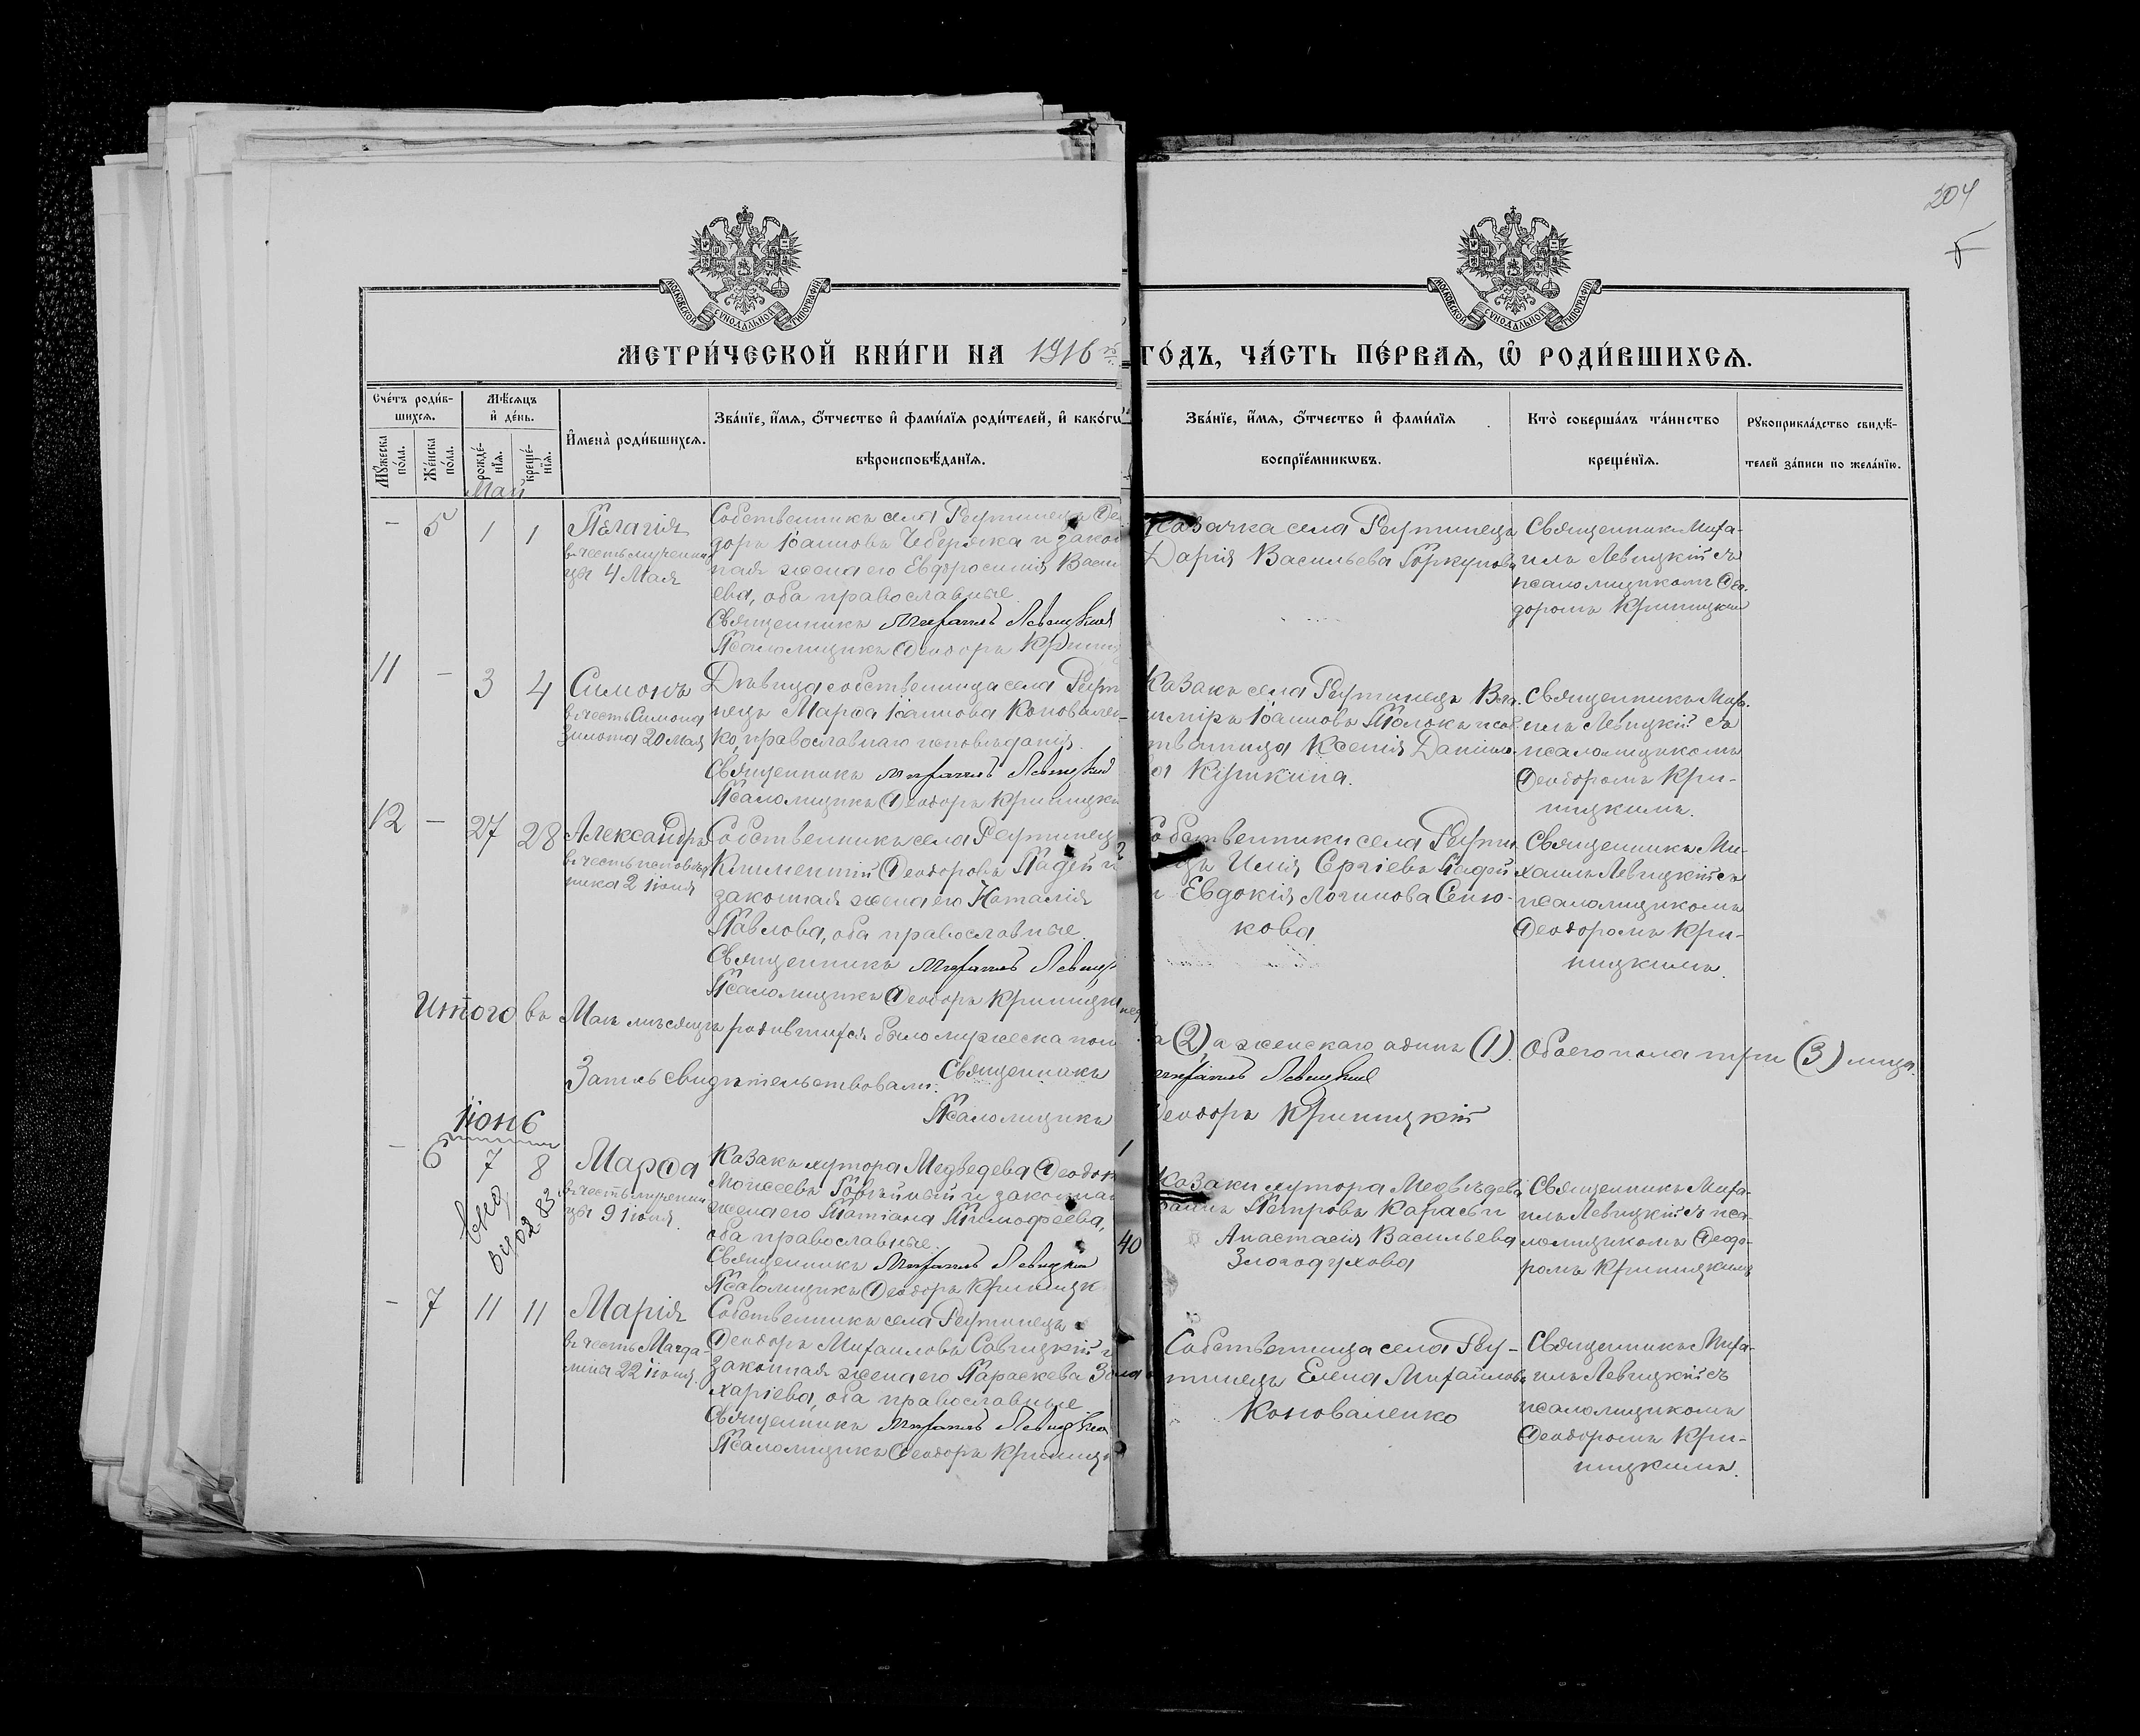 204
МОСКОВСКОЙ СѴНОДАЛЬНОЙ ТИПОГРАФІИ
МОСКОВСКОЙ СѴНОДАЛЬНОЙ ТИПОГРАФІИ
МЕТРИ́ЧЕСКОЙ КНИ́ГИ НА 1916 й
ГО́ДЪ, ЧА́СТЬ ПЕ́РВАѦ, Ѡ҆ РОДИ́ВШИХСѦ.
Сче́тъ роди́в-
шихся.
Мꙋ́жеска по́ла.
Же́нска по́ла.
Мѣ́сяцъ
и҆ де́нь.
рожде́-
нїя.
креще́-
нїя.
И҆мена̀ роди́вшихся.
Зва́нїе, и҆́мя, ѻ҆́тчество и҆ фами́лїя роди́телей, и҆ како́гѡ
вѣроисповѣ́данїя.
Зва́нїе, и҆́мя, ѻ҆́тчество и҆ фами́лїя
воспрїе́мникѡвъ.
Кто̀ соверша́лъ та́инство
креще́нїя.
Рꙋкоприкла́дство свидѣ́-
телей за́писи по жела́нїю.
Май
- 5 1 1 Пелагія
въ честь мучени-
цы 4 Мая
Собственникъ села Реутинецъ Ѳео
доръ Іоанновъ Чеберяка и закон
ная жена его Евфросинія Васи
ева, оба православные
Священникъ Михаилъ Левицкій
Псаломщикъ Ѳеодоръ Криниц
Казачка села Реутинецъ
Дарія Васильева Горкунова
Священникъ Миха-
илъ Левицкій съ
псаломщикомъ Ѳео-
доромъ Криницким
11 - 3 4 Симонъ
въ честь Симона
Зилота 20 Мая
Дѣвица собственница села Реут
нецъ Марѳа Іоаннова Коновален-
ко, православнаго исповѣданія.
Священникъ Михаилъ Левицкій
Псаломщикъ Ѳеодоръ Криницки
Казакъ села Реутинецъ Вла
иміръ Іоанновъ
твенница Ксенія Даніило-
ва
Священникъ Миха-
илъ Левицкій съ
псаломщикомъ
Ѳеодоромъ Кри-
ницкимъ.
12 - 27 28 Александръ
въ честь исповѣд
ника 2 іюня
Собственникъ села Реутинец
Климентій Ѳеодоровъ Падей и
законная жена его Наталія
Павлова, оба православные
Священникъ Михаилъ Левиц
Псаломщикъ Ѳеодоръ Криницки
Собственники села Реути
цъ Илія Сергіевъ Падей
и Евдокія Логинова Сеню-
кова
Священникъ Ми-
хаилъ Левицкій съ
псаломщикомъ
Ѳеодоромъ Кри-
ницкимъ.
Итого въ Маѣ мѣсяцѣ родившихся было мужеска пол
а (2), а женскаго одинъ (1). Обоего пола три (3) лица.
Запись свидѣтельствовали: Священникъ
Михаилъ Левицкій
Псаломщикъ
Ѳеодоръ Криницкій
Іюнь
- 6 7 8 Марѳа
въ честь мучени
цы 9 іюня.
Казакъ хутора Медведева Ѳеодот
Моисеевъ и законная
жена его Татіана Тимофеева,
оба православные.
Священникъ Михаилъ Левицкій
Псаломщикъ Ѳеодоръ Криницк
1
40
Казаки хутора Медвѣдева
Петровъ Карась и
Анастасія Васильева
Злогодухова
Священникъ Миха-
илъ Левицкій съ пса-
ломщикомъ Ѳеодо-
ромъ Криницкимъ
- 7 11 11 Марія
въ честь Магда-
лины 22 іюля.
Собственникъ села Реутинецъ
Ѳеодоръ Михаиловъ Савицкій и
законная жена его Параскева За
харіева, оба православные
Священникъ Михаилъ Левицкій
Псаломщикъ Ѳеодоръ Криницк
Собственница села Реу-
тинецъ Елена Михайлова
Коноваленко
Священникъ Миха-
илъ Левицкій съ
псаломщикомъ
Ѳеодоромъ Кри-
ницкимъ.